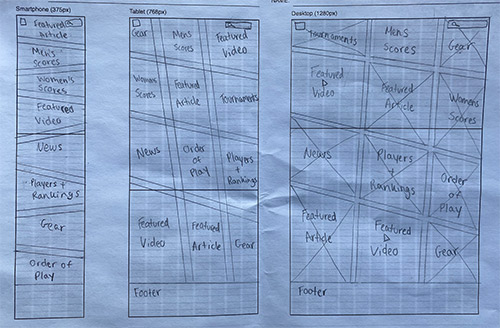 Smartphone (375px)
Featured
Article
Men's
Scores
Women's
Scores
Featured
Video
News
Players +
Rankings
Gear
Order of
Play
Tablet (768px)
Gear
Mens
Scores
Featured
Video
Womens
Scores
Featured
Article
Tournaments
News
Order
of
Play
Players +
Rankings
Featured
Video
Featured
Article
Gear
Footer
Desktop (1280px)
Tournaments
Mens
Scores
Gear
Featured
Video
Featured
Article
Womens
Scores
News
Players
+
Rankings
Order
of
Play
Featured
Article
Featured
Video
Gear
Footer